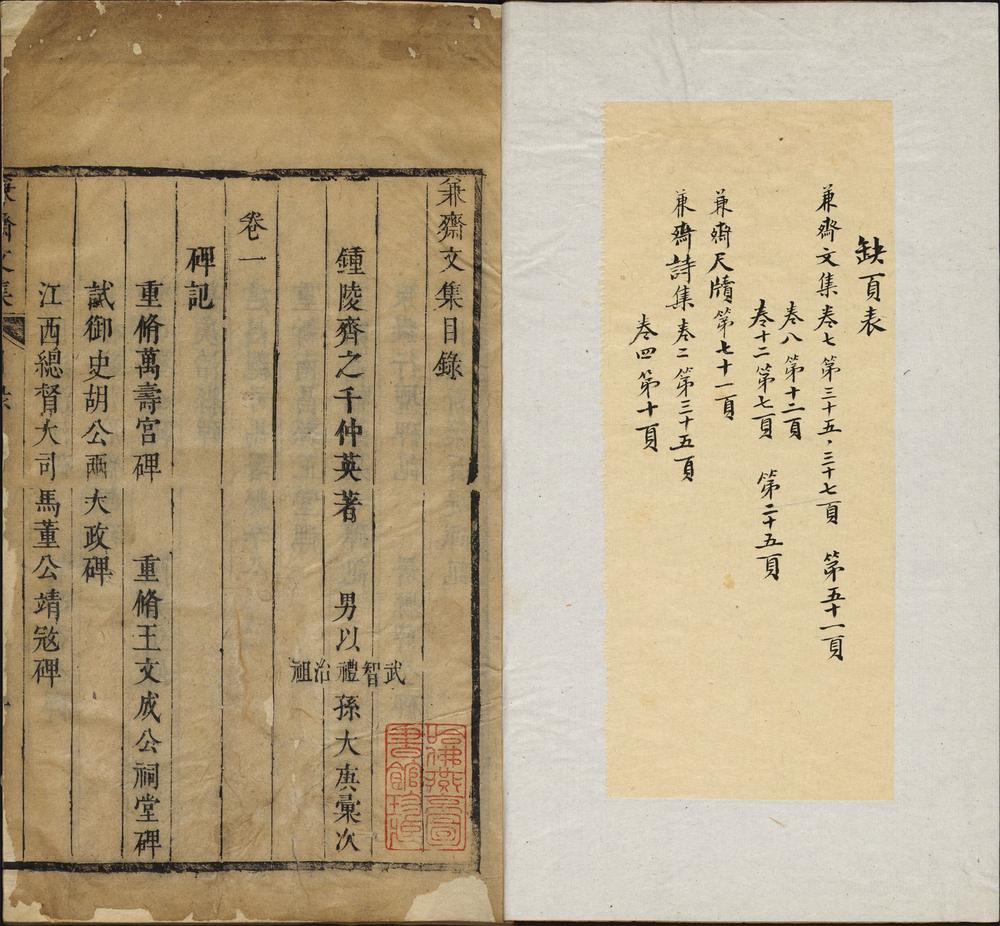 缺頁表
兼齋文集 卷七 第三十五、三十七頁 第五十一頁
卷八 第十二頁
卷十二 第七頁 第二十五頁
兼齋尺牘 第七十一頁
兼齋詩集 卷二 第三十五頁
卷四 第十頁
兼齋文集目錄
鍾陵齊之千仲英著 男以武智禮治祖 孫大庚彙次
哈佛燕京圖書館珍藏
卷一
碑記
重脩萬壽宮碑 重脩王文成公祠堂碑
試御史胡公兩大政碑
江西總督大司馬董公靖寇碑
兼齋文集